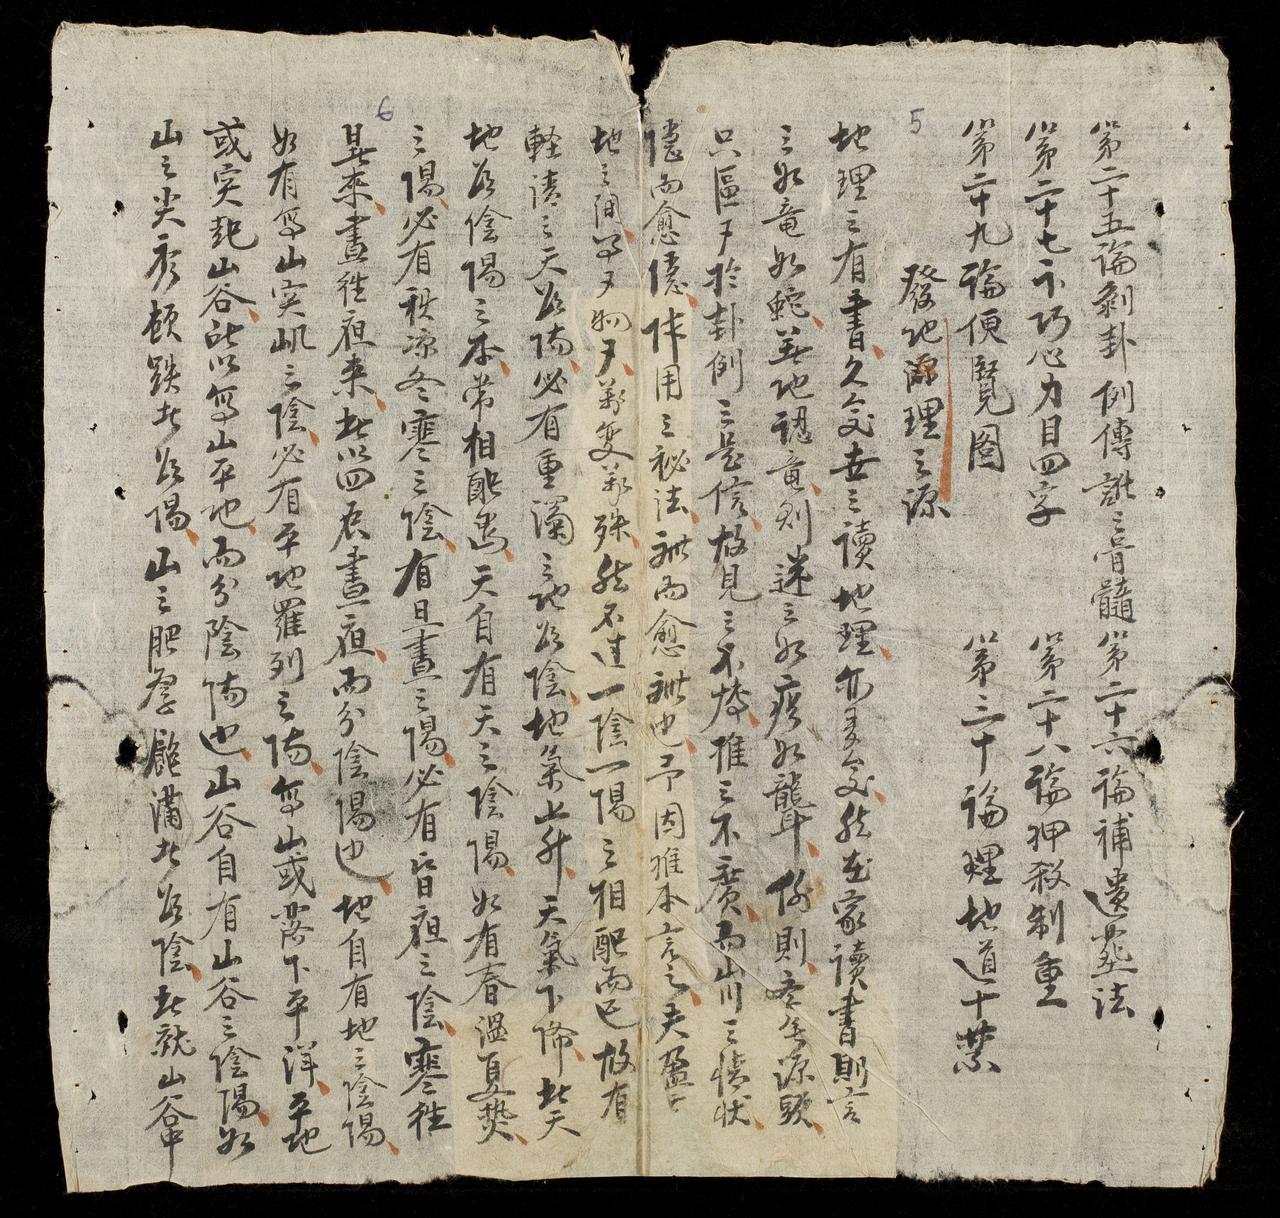 第二十五論剝卦例傳訛之骨髓 第二十六論補遺葬法
第二十七示巧心力目四字 第二十八論押殺制重
第二十九論便覽圖 第三十論理地道十禁
發地源理之源
5
地理之有書久矣世之讀地理亦多矣然在家讀書則言
之如竜如蛇至地認竜則迷之如痴如聾係則夲無源頭
只區々於卦例之是信故見之不博推之不廣而山川之情狀
隱而愈隱体用之秘法祕而愈祕也予因推本言之夫盈天
地之間事々物々萬变萬殊然不过一陰一陽之相配而已故有
輕清之天為陽必有重濁之地為陰地氣上升天氣下降此天
地為陰陽之本常相配焉天自有天之陰陽如有春溫夏熱
之陽必有秋凉冬寒之陰有旦晝之陽必有昏夜之陰寒徃
6
暑來晝徃夜来此以四辰晝夜而分陰陽也地自有地之陰陽
如有高山突屼之陰必有平地羅列之陽高山或落下平洋平地
或突起山谷所以高山平地而分陰陽也山谷自有山谷之陰陽如
山之尖秀頓跌此為陽山之肥厚飽滿此為陰此就山谷中